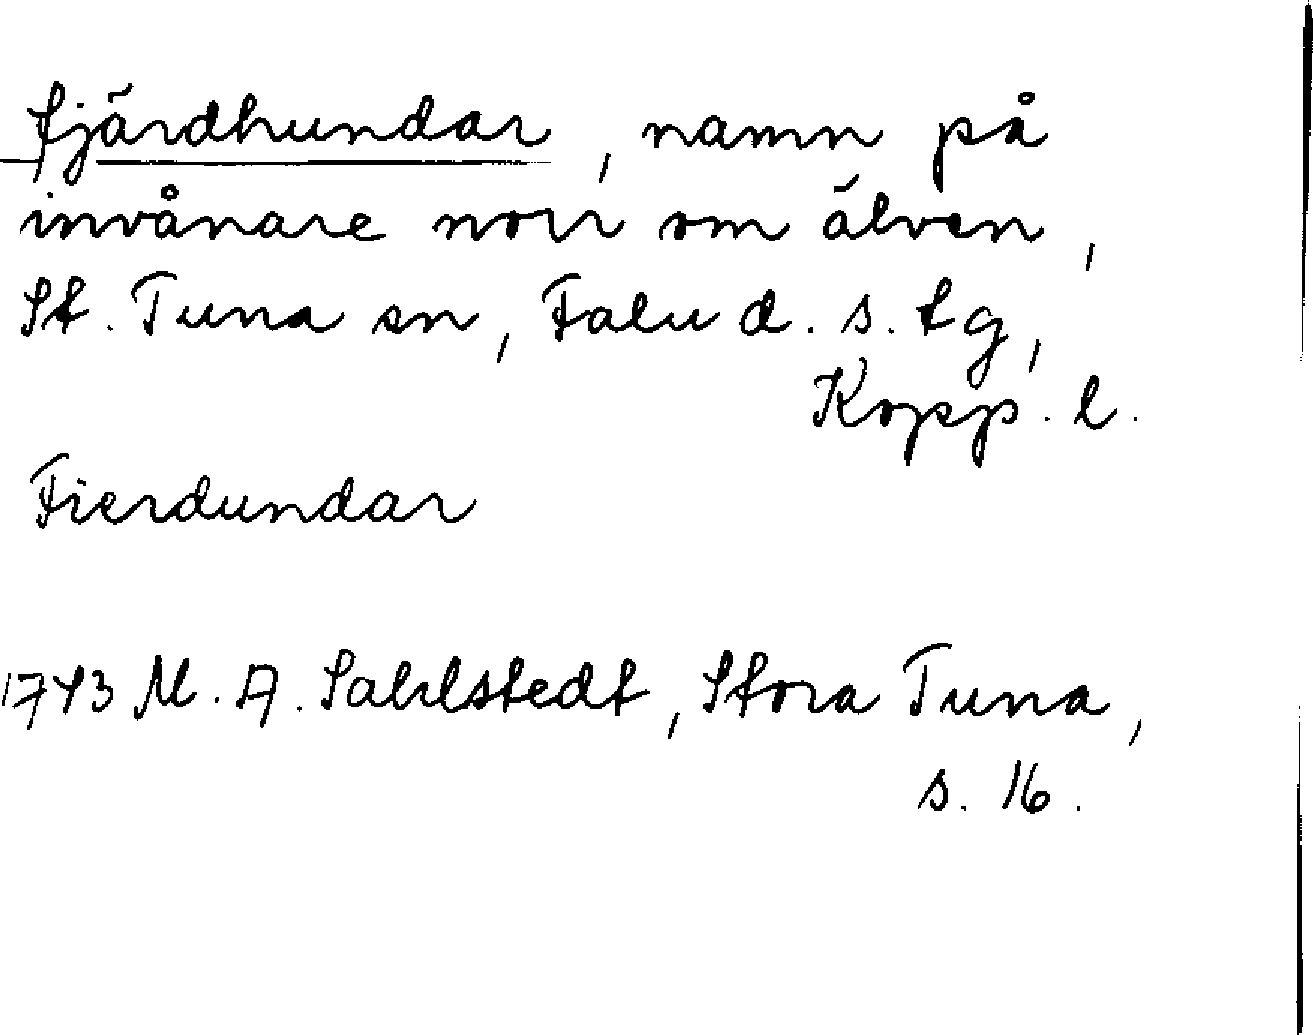 fjärdhundar, namn på
invånare norr om älven,
St. Tuna sn, Falu d. s. tg,
Kopp. l.
Fierdundar
1743 M. A. Sahlstedt, Stora Tuna,
s. 16.